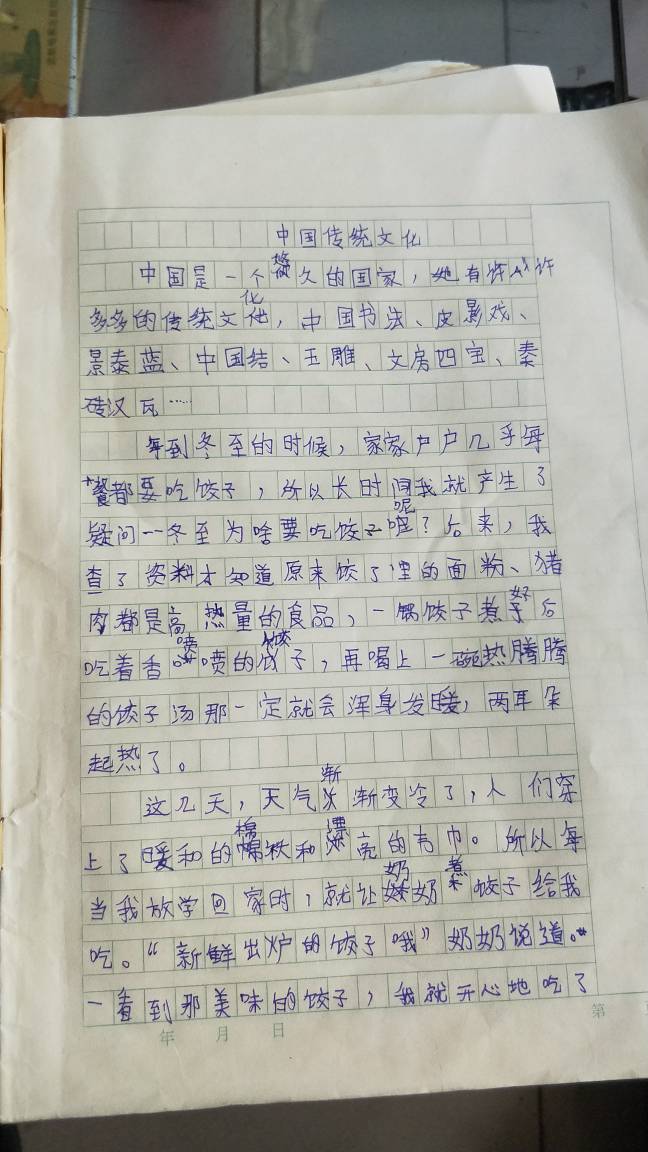 中国传统文化
中国是一个悠久的国家，她有许许
多多的传统文化，中国书法、皮影戏、
景泰蓝、中国结、玉雕、文房四宝、秦
砖汉瓦……
每到冬至的时候，家家户户几乎每
餐都要吃饺子，所以长时间我就产生了
疑问一冬至为啥要吃饺子呢？后来，我
查了资料才知道原来饺子里的面粉、猪
肉都是高热量的食品，一锅饺子煮好后
吃着香喷喷的饺子，再喝上一碗热腾腾
的饺子汤那一定就会浑身发暖，两耳朵
起热了。
这几天，天气渐渐变冷了，人们穿
上了暖和的棉袄和漂亮的围巾。所以每
当我放学回家时，就让奶奶煮饺子给我
吃。“新鲜出炉的饺子哦”奶奶说道。
一看到那美味的饺子，我就开心地吃了
年 月 日
第